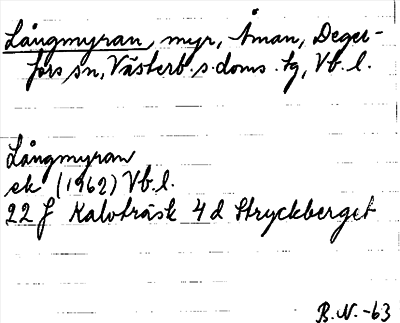 Långmyran, myr, Åman, Deger-
fors sn, Västerb. s. doms. tg, Vb. l.
Långmyran
ek (1962) Vb. l.
22 J Kalvträsk 4 d Stryckberget
B. N. -63